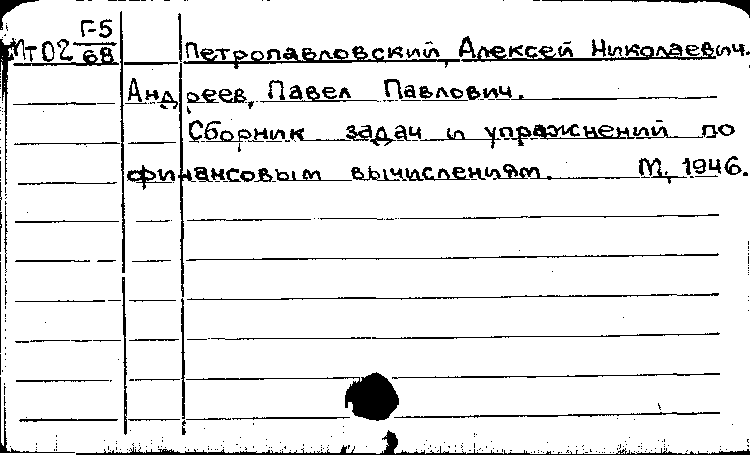 Г-5
Мт02 68 Петропавловский, Алексей Николаевич.
Андреев, Павел Павлович.
Сборник задач и упражнений по
финансовым вычислениям. М, 1946.